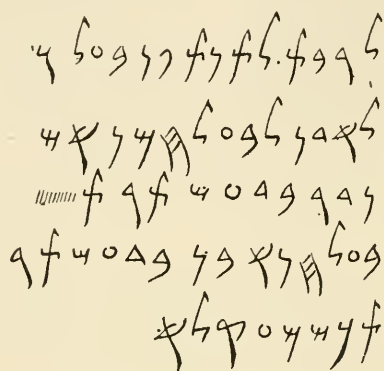 𐤋𐤓𐤁𐤕.𐤋𐤕𐤍𐤕𐤐𐤍𐤁𐤏𐤋𐤅
𐤋𐤀𐤃𐤍𐤋𐤁𐤏𐤋𐤇𐤌𐤍𐤀𐤔
𐤍𐤃𐤓𐤁𐤃𐤏𐤔𐤕𐤓𐤕
𐤁𐤏𐤋𐤇𐤍𐤀𐤁𐤍𐤁𐤃𐤏𐤔𐤕𐤓
𐤕𐤊𐤔𐤌𐤏𐤒𐤋𐤀